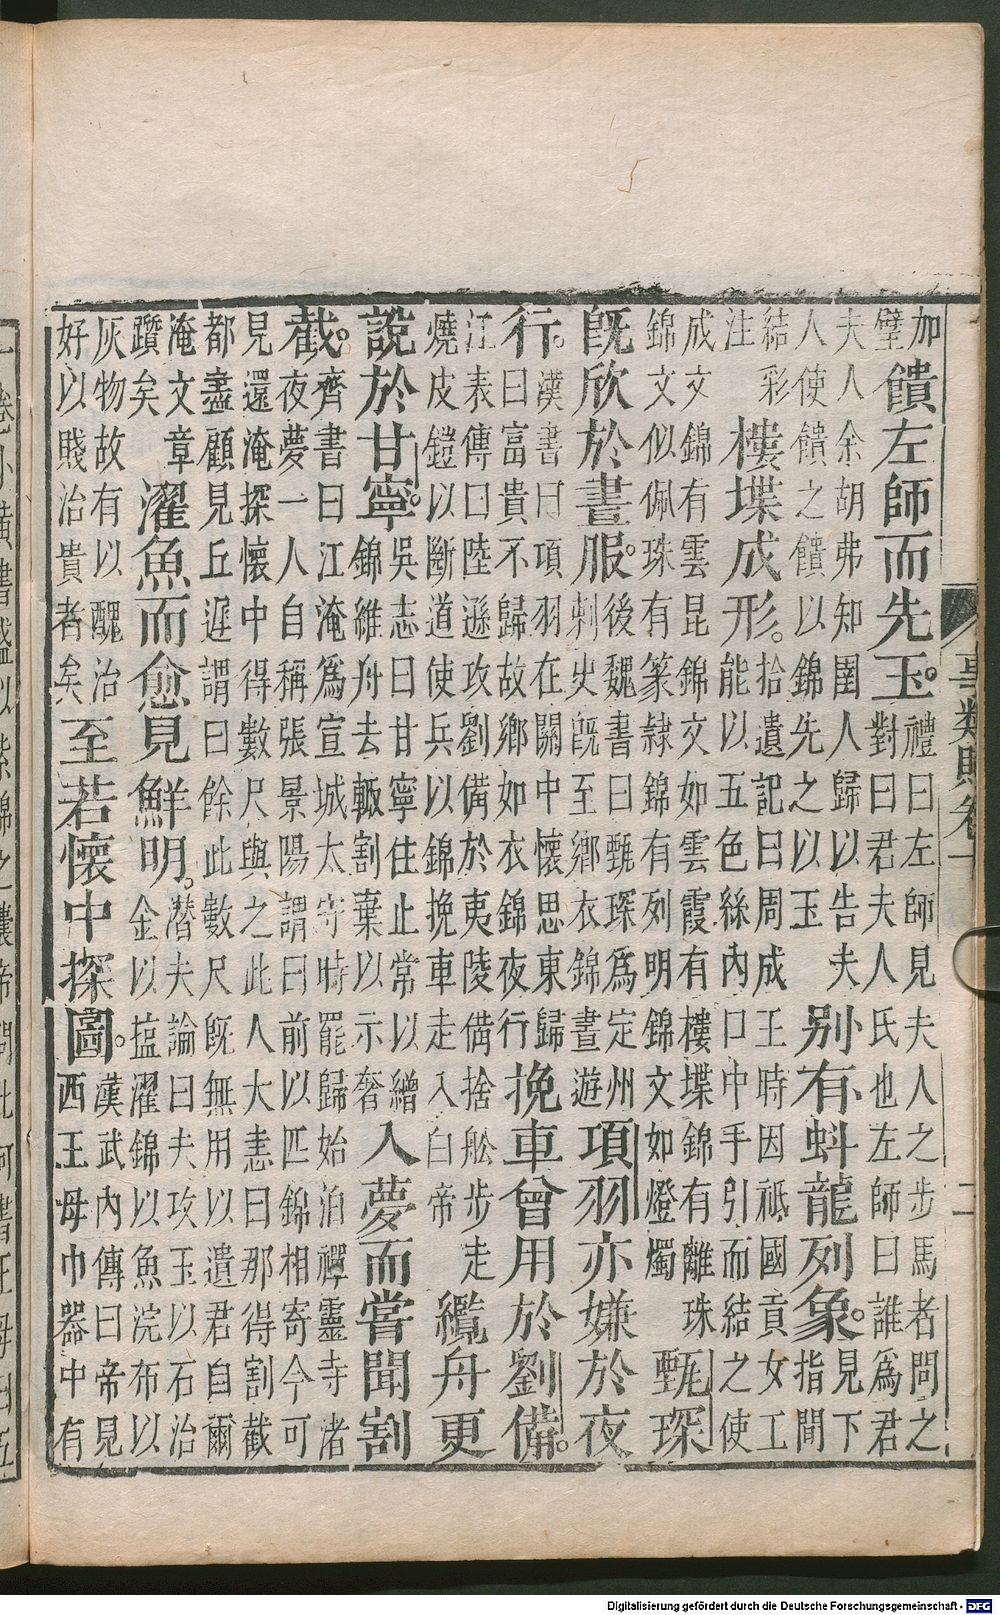 加璧饋左師而先玉。禮曰左師見夫人之步馬者問之對曰君夫人氏也左師曰誰為君
夫人余胡弗知圉人歸以告夫人使饋之饋以錦先之以玉別有蚪龍列象。見下指間
結彩注樓堞成形。拾遺記曰周成王時因祗國貢女工能以五色絲內口中手引而結之使
成文錦有雲昆錦文如雲霞有樓堞錦有離珠錦文似佩珠有篆隸錦有列明錦文如燈燭甄琛
既欣於晝服。後魏書曰甄琛為定州刺史既至鄉衣錦晝遊項羽亦嫌於夜
行。漢書曰項羽在關中懷思東歸曰富貴不歸故鄉如衣錦夜行挽車曾用於劉備。
江表傳曰陸遜攻劉備於夷陵備捨舩步走燒皮鎧以斷道使兵以錦挽車走入白帝纜舟更
說於甘寧。吳志曰甘寧住止常以繒錦維舟去輙割棄以示奢入夢而嘗聞割
截。齊書曰江淹為宣城太守時罷歸始泊禪靈寺渚夜夢一人自稱張景陽謂曰前以匹錦相寄今可
見還淹探懷中得數尺與之此人大恚曰那得割截都盡顧見丘遲謂曰餘此數尺既無用以遺君自爾
淹文章躓矣濯魚而愈見鮮明。潜夫論曰夫攻玉以石治金以揾濯錦以魚浣布以
灰物故有以醜治好以賤治貴者矣至若懷中探圖。漢武內傳曰帝見西王母巾器中有
事類賦卷十 二
Digitalisierung gefördert durch die Deutsche Forschungsgemeinschaft - DFG